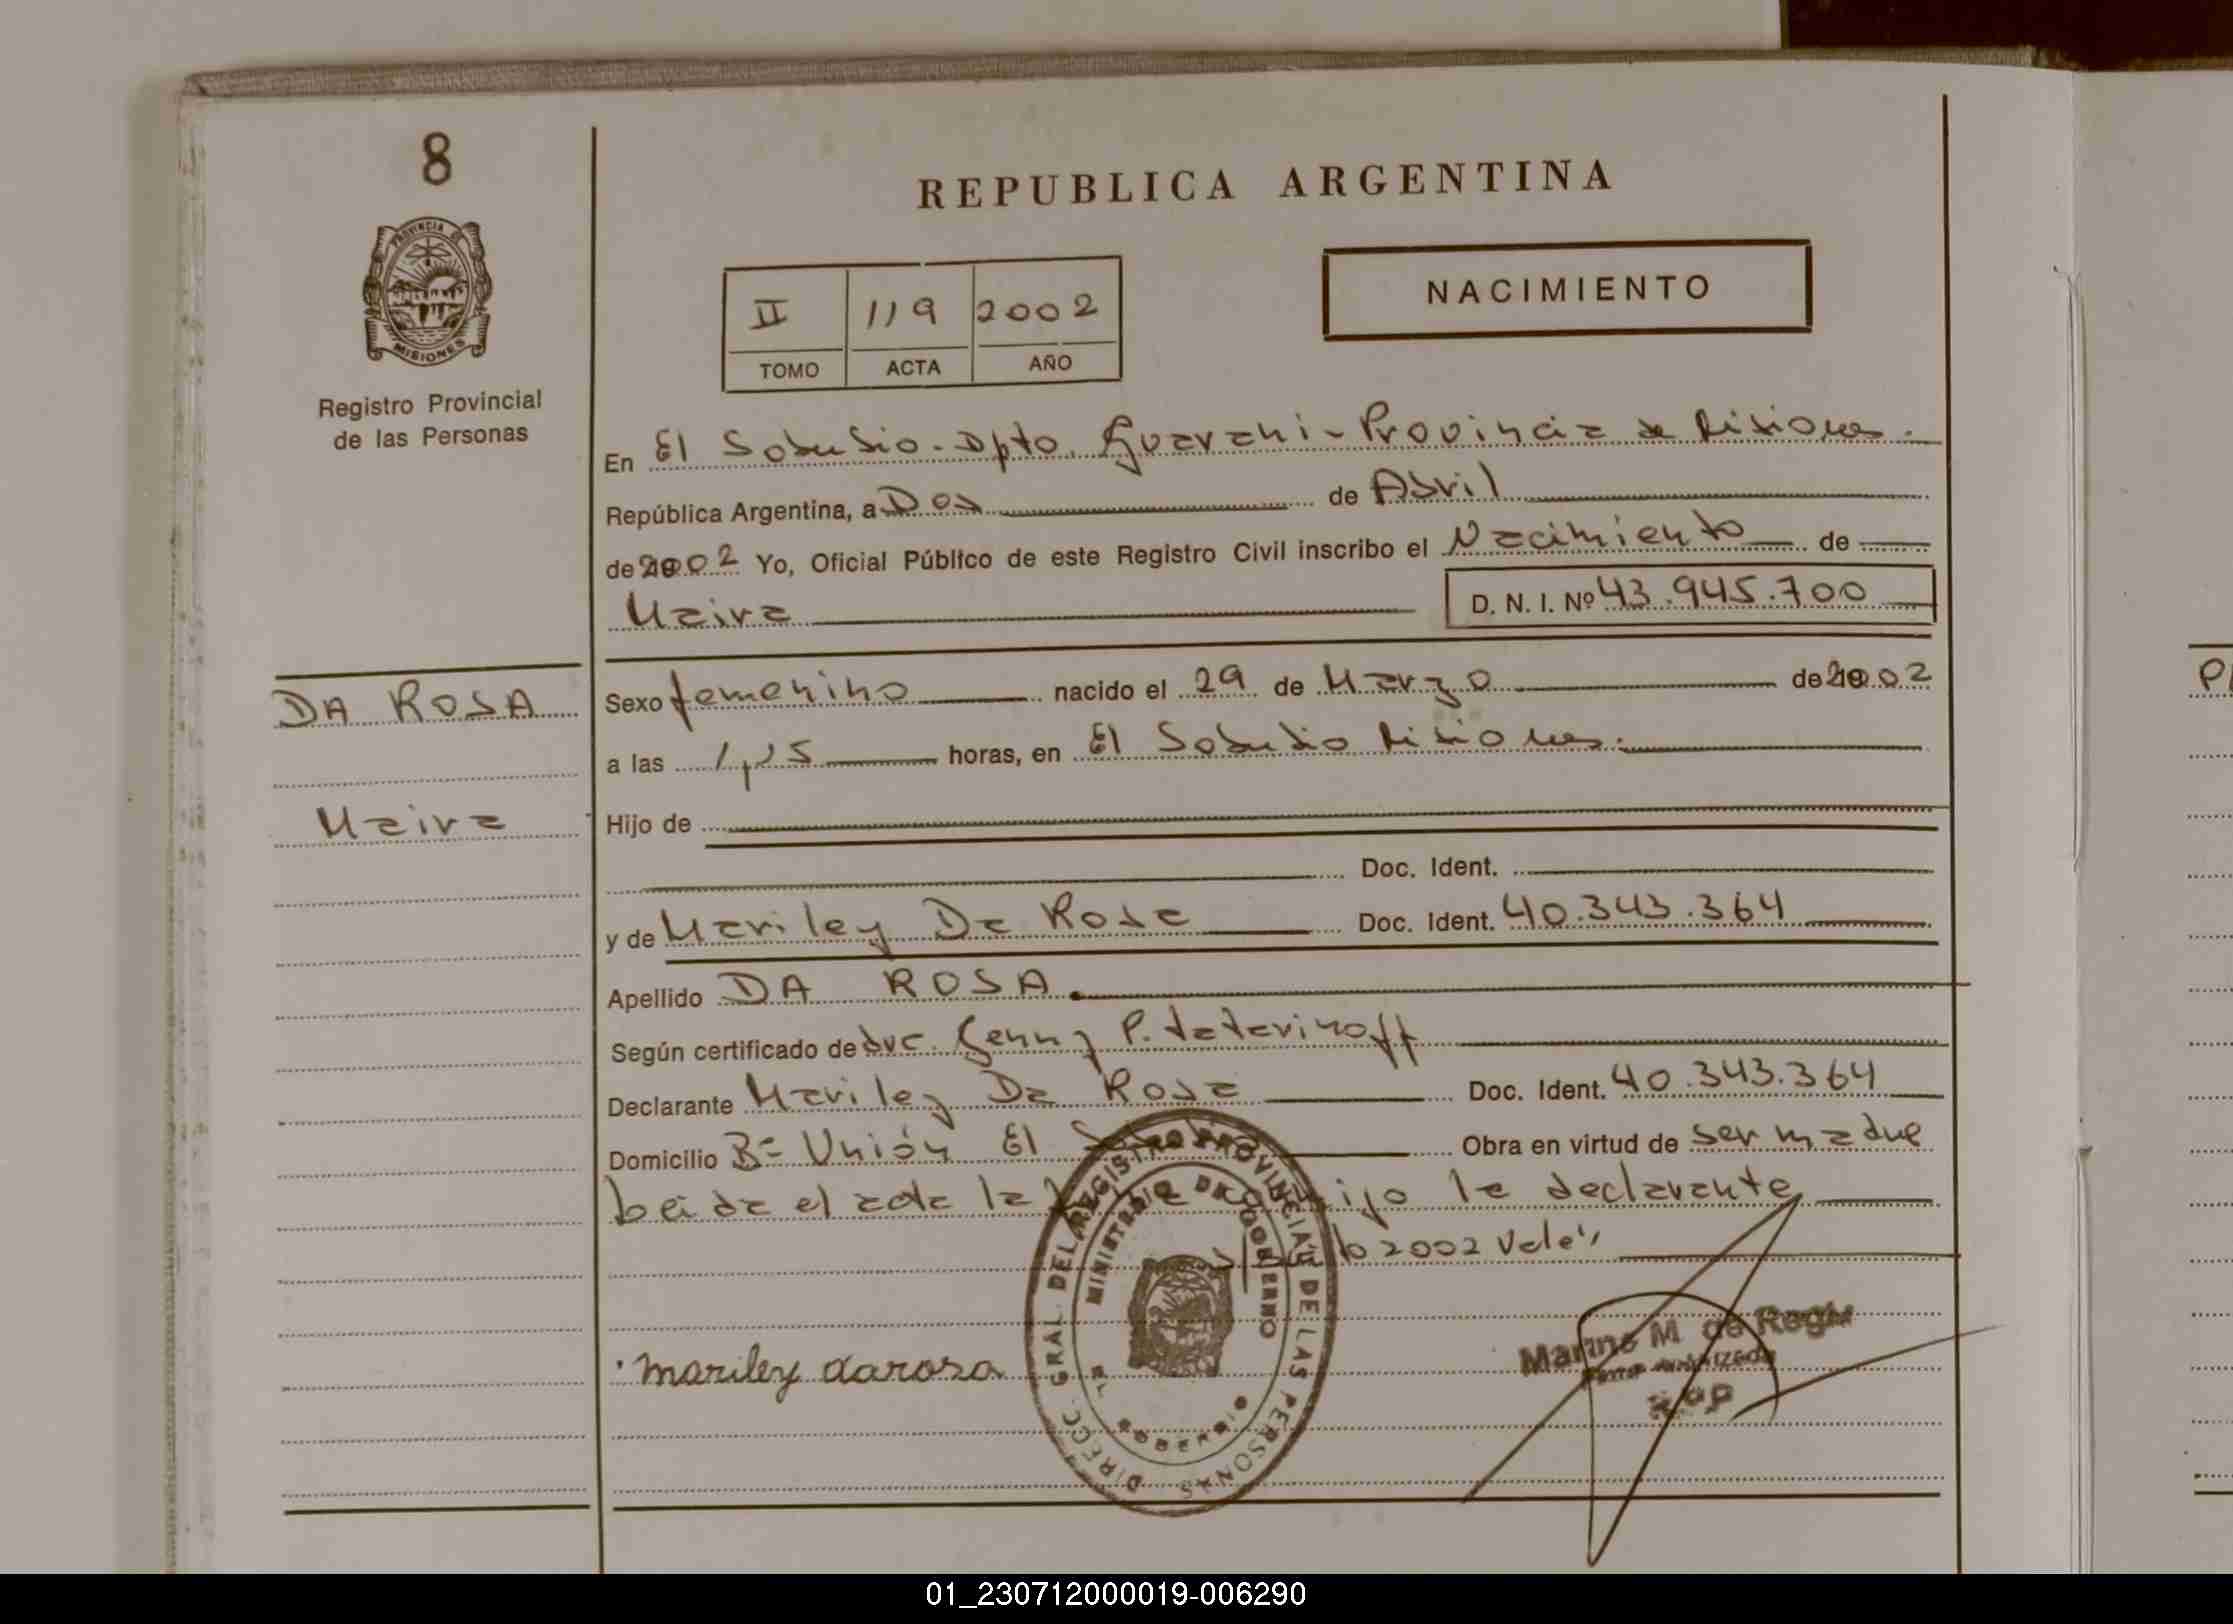 8
PROVINCIA DE
MISIONES
Registro Provincial
de las Personas
DA ROSA
Maira
REPUBLICA ARGENTINA
NACIMIENTO
II 119 2002
TOMO ACTA AÑO
En El Soberbio - Dpto. Guarani - Provincia de Misiones.
República Argentina, a Dos de Abril
de 2002 Yo, Oficial Público de este Registro Civil inscribo el Nacimiento de
Maira D. N. I. Nº 43.945.700
Sexo femenino nacido el 29 de Marzo de 2002
a las 1,15 horas, en El Soberbio Misiones.
Hijo de
Doc. Ident.
y de Mariley Da Rosa Doc. Ident. 40.343.364
Apellido DA ROSA.
Según certificado de Genny P.
Declarante Mariley Da Rosa Doc. Ident. 40.343.364
Domicilio Bº Unión El Obra en virtud de ser madre
Leida el acta la la declarante
2002 Vale"
mariley darosa
DIRECC. GRAL. DEL REGISTRO PROVINCIAL DE LAS PERSONAS
MINISTERIO DE GOBIERNO
EL SOBERBIO
Marino M. de
01_230712000019-006290